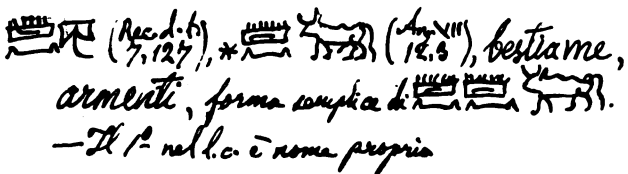 𓏠𓈖 (Rec. d. t. 7,127), *𓏠𓈖𓃒 (An. VII 12,3), bestiame,
armenti, forma semplice di 𓏠𓈖𓏠𓈖𓃒.
— Il 1º nel l.c. è nome proprio